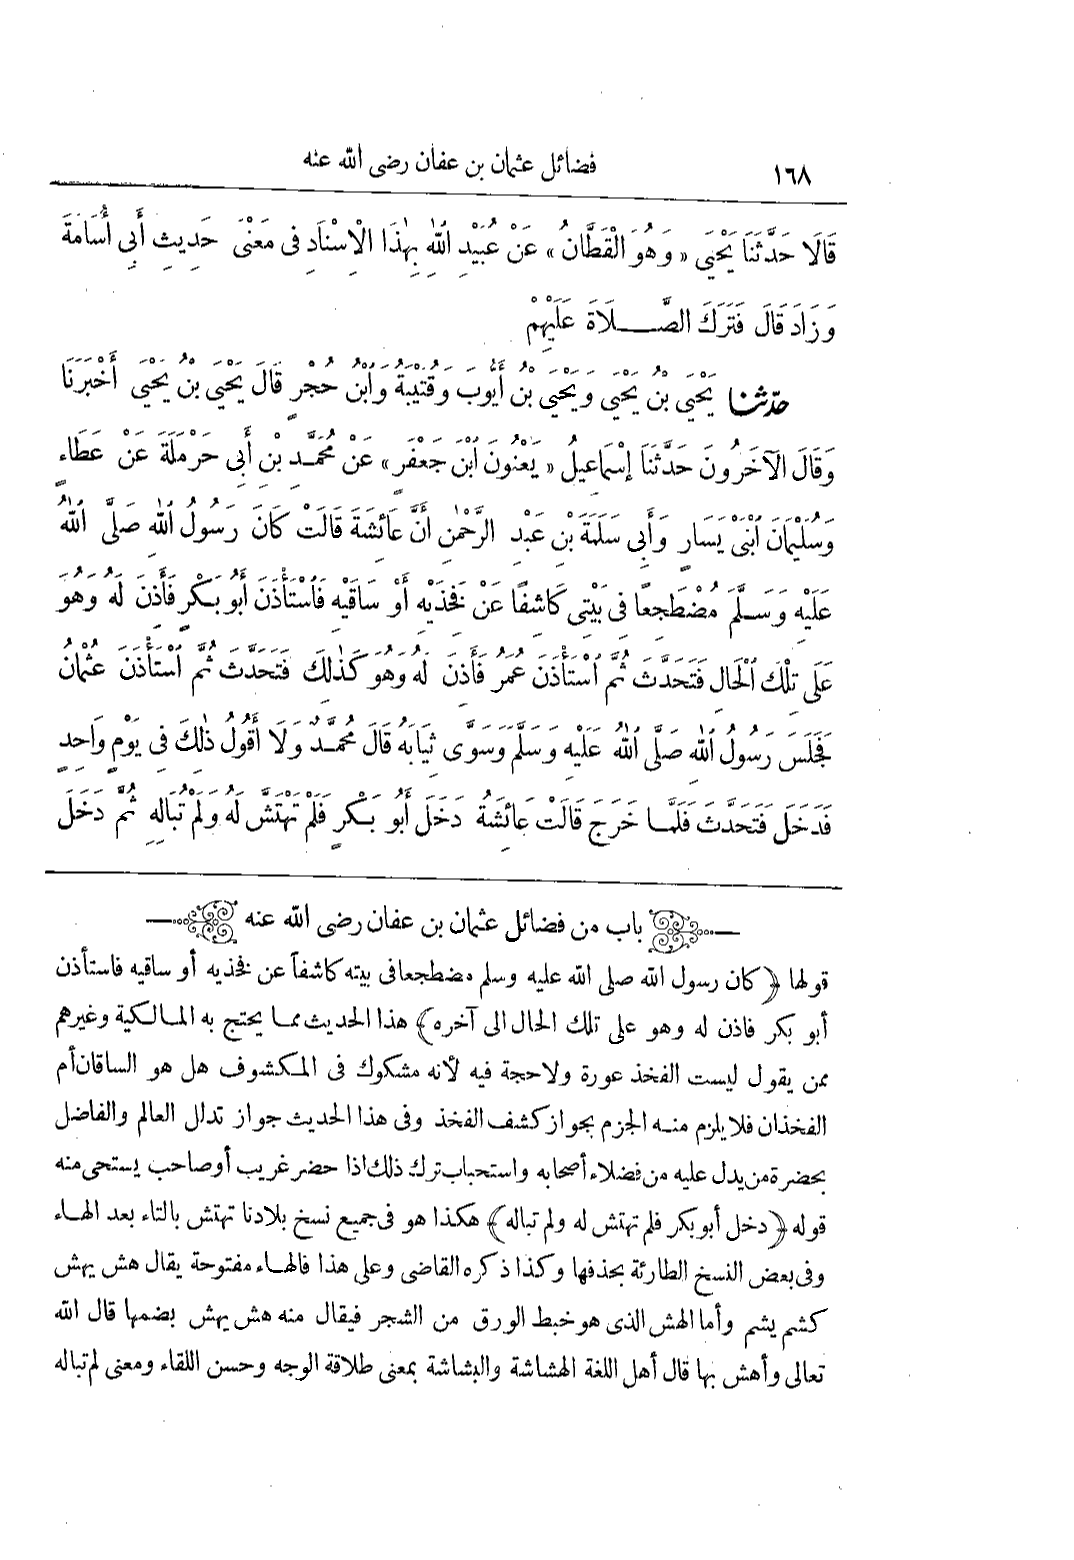 ١٦٨ فضائل عثمان بن عفان رضى الله عنه
قَالَا حَدَّثَنَا يَحْيَى «وَهُوَ الْقَطَّانُ» عَنْ عُبَيْدِ اللهِ بِهٰذَا الْاِسْنَادِ فِى مَعْنَى حَدِيثِ أَبِى أُسَامَةَ
وَزَادَ قَالَ فَتَرَكَ الصَّلَاةَ عَلَيْهِمْ
حدّثنا يَحْيَى بْنُ يَحْيَى وَيَحْيَى بْنُ أَيُّوبَ وَقُتَيْبَةُ وَابْنُ حُجْرٍ قَالَ يَحْيَى بْنُ يَحْيَى أَخْبَرَنَا
وَقَالَ الْآخَرُونَ حَدَّثَنَا إِسْمَاعِيلُ «يَعْنُونَ ابْنَ جَعْفَرٍ» عَنْ مُحَمَّدِ بْنِ أَبِى حَرْمَلَةَ عَنْ عَطَاءٍ
وَسُلَيْمَانَ ابْنَىْ يَسَارٍ وَأَبِى سَلَمَةَ بْنِ عَبْدِ الرَّحْمٰنِ أَنَّ عَائِشَةَ قَالَتْ كَانَ رَسُولُ اللهِ صَلَّى اللهُ
عَلَيْهِ وَسَلَّمَ مُضْطَجِعًا فِى بَيْتِى كَاشِفًا عَنْ فَخِذَيْهِ أَوْ سَاقَيْهِ فَاسْتَأْذَنَ أَبُو بَكْرٍ فَأَذِنَ لَهُ وَهُوَ
عَلَى تِلْكَ الْحَالِ فَتَحَدَّثَ ثُمَّ اسْتَأْذَنَ عُمَرُ فَأَذِنَ لَهُ وَهُوَ كَذٰلِكَ فَتَحَدَّثَ ثُمَّ اسْتَأْذَنَ عُثْمَانُ
فَجَلَسَ رَسُولُ اللهِ صَلَّى اللهُ عَلَيْهِ وَسَلَّمَ وَسَوَّى ثِيَابَهُ قَالَ مُحَمَّدٌ وَلَا أَقُولُ ذٰلِكَ فِى يَوْمٍ وَاحِدٍ
فَدَخَلَ فَتَحَدَّثَ فَلَمَّا خَرَجَ قَالَتْ عَائِشَةُ دَخَلَ أَبُو بَكْرٍ فَلَمْ تَهْتَشَّ لَهُ وَلَمْ تُبَالِهِ ثُمَّ دَخَلَ
باب من فضائل عثمان بن عفان رضى الله عنه
قولها ﴿كان رسول الله صلى الله عليه وسلم مضطجعا فى بيته كاشفاً عن فخذيه أو ساقيه فاستأذن
أبو بكر فاذن له وهو على تلك الحال الى آخره﴾ هذا الحديث مما يحتج به المالكية وغيرهم
ممن يقول ليست الفخذ عورة ولا حجة فيه لأنه مشكوك فى المكشوف هل هو الساقان أم
الفخذان فلا يلزم منه الجزم بجواز كشف الفخذ وفى هذا الحديث جواز تدلل العالم والفاضل
بحضرة من يدل عليه من فضلاء أصحابه واستحباب ترك ذلك اذا حضر غريب أو صاحب يستحى منه
قوله ﴿دخل أبو بكر فلم تهتش له ولم تباله﴾ هكذا هو فى جميع نسخ بلادنا تهتش بالتاء بعد الهاء
وفى بعض النسخ الطارئة بحذفها وكذا ذكره القاضى وعلى هذا فالهاء مفتوحة يقال هش يهش
كشم يشم وأما الهش الذى هو خبط الورق من الشجر فيقال منه هش يهش بضمها قال الله
تعالى وأهش بها قال أهل اللغة الهشاشة والبشاشة بمعنى طلاقة الوجه وحسن اللقاء ومعنى لم تباله